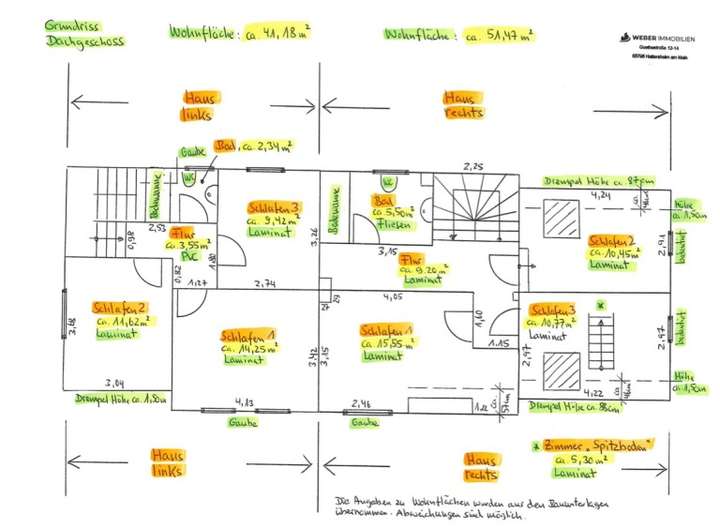 Grundriss
Dachgeschoss
Wohnfläche: ca. 41,18 m²
Wohnfläche: ca. 51,47 m²
WEBER IMMOBILIEN
Haus
links
Haus
rechts
Gaube
Bad, ca. 2,34 m²
WC
Badewanne
2,53
0,98
Flur
ca. 3,55 m²
PVC
0,82
1,27
Schlafen 3
ca. 9,42 m²
Laminat
3,26
2,74
Badewanne
WC
Bad
ca. 5,50 m²
Fliesen
3,15
2,25
Flur
ca. 9,20 m²
Laminat
4,05
Drempel Höhe ca. 87cm
4,24
Höhe
ca. 1,50m
Schlafen 2
ca. 10,45 m²
Laminat
2,91
Schlafen 2
ca. 11,62 m²
Laminat
3,68
3,04
Drempel Höhe ca. 1,50m
Schlafen 1
ca. 14,25 m²
Laminat
3,42
3,15
4,13
Gaube
Schlafen 1
ca. 15,55 m²
Laminat
1,60
1,15
2,46
Gaube
57cm
Schlafen 3
ca. 10,77 m²
Laminat
*
2,97
2,97
4,22
Höhe
ca. 1,50m
Drempel Höhe ca. 88cm
Haus
links
Haus
rechts
* Zimmer „Spitzboden"
ca. 5,30 m²
Laminat
Die Angaben zu Wohnflächen wurden aus den Bauunterlagen
übernommen. Abweichungen sind möglich.